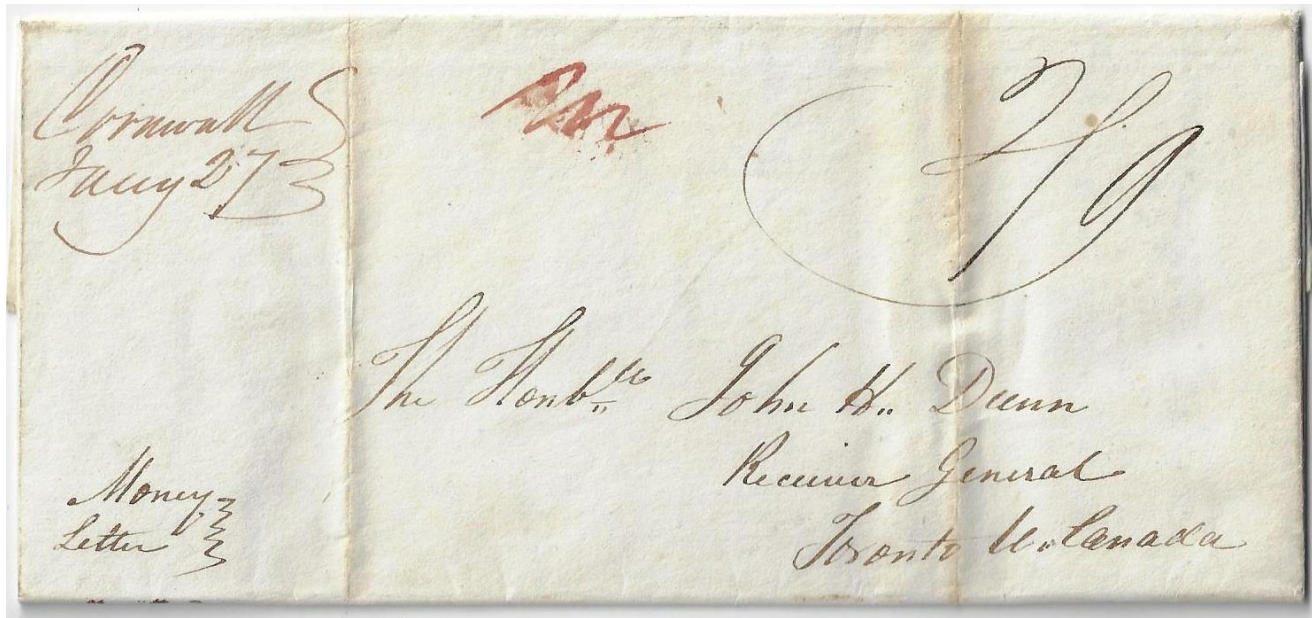 Cornwall
Jany 27
The Honble John H. Dunn
Receiver General
Toronto U. Canada
Money
Letter